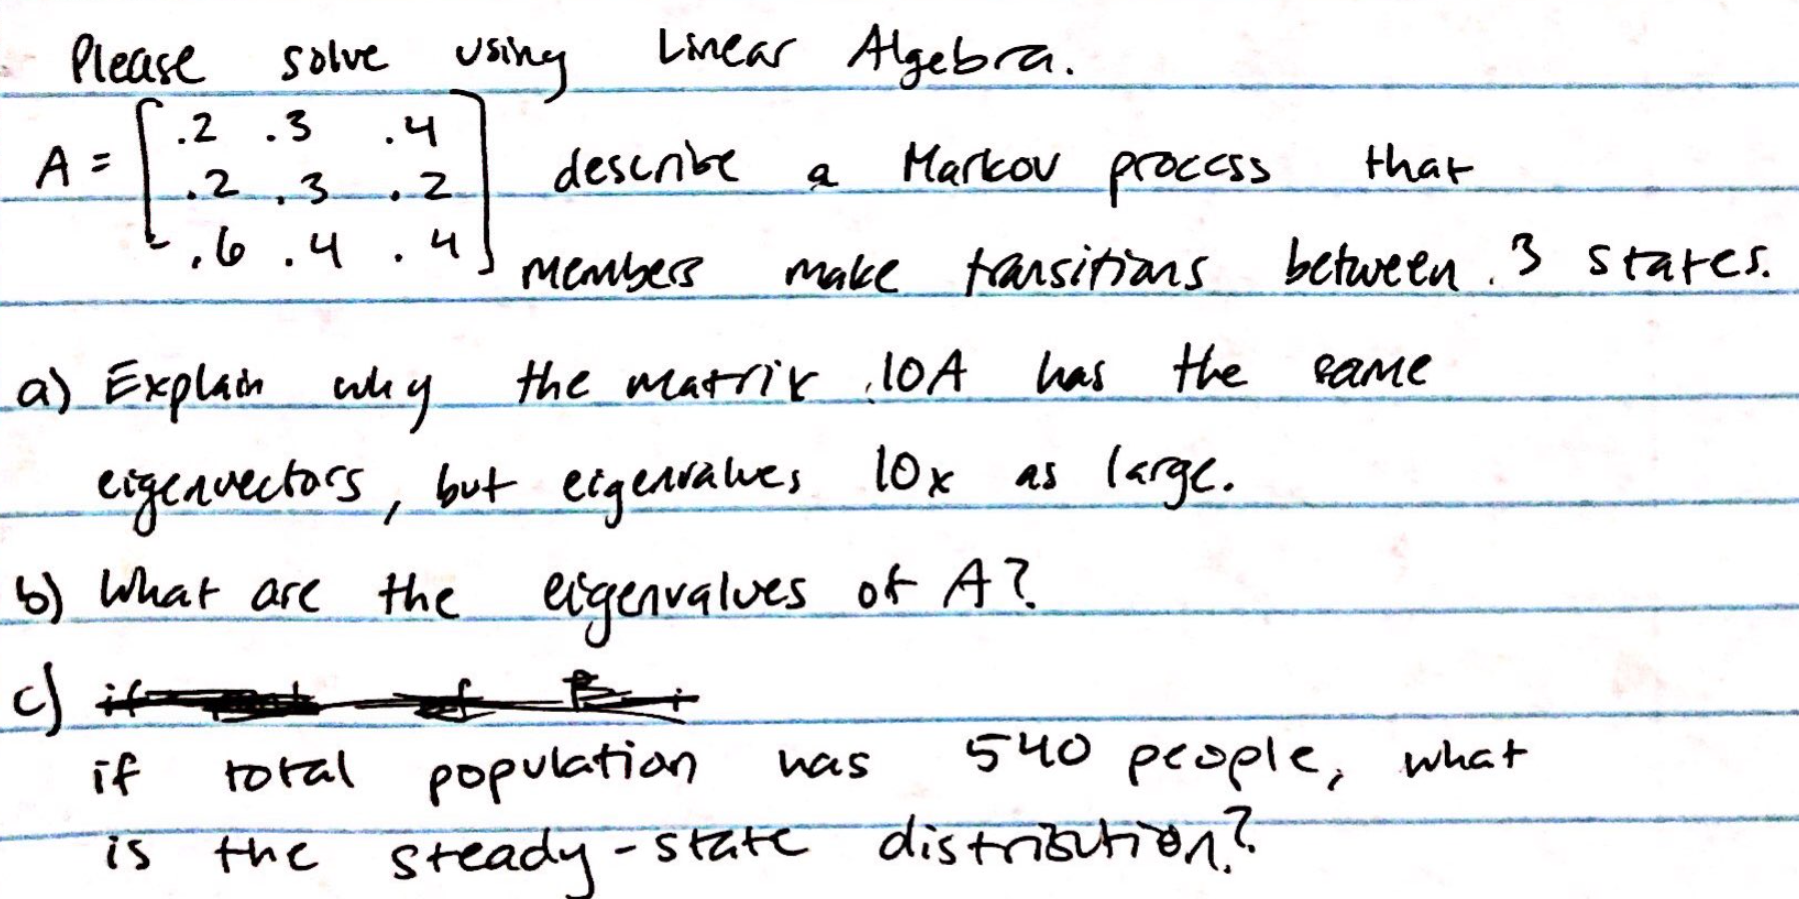 Please solve using Linear Algebra.
A = [ .2 .3 .4
.2 .3 .2
.6 .4 .4 ] describe a Markov process that
members make transitions between 3 states.
a) Explain why the matrix 10A has the same
eigenvectors, but eigenvalues 10x as large.
b) What are the eigenvalues of A?
c)
if total population has 540 people, what
is the steady-state distribution?